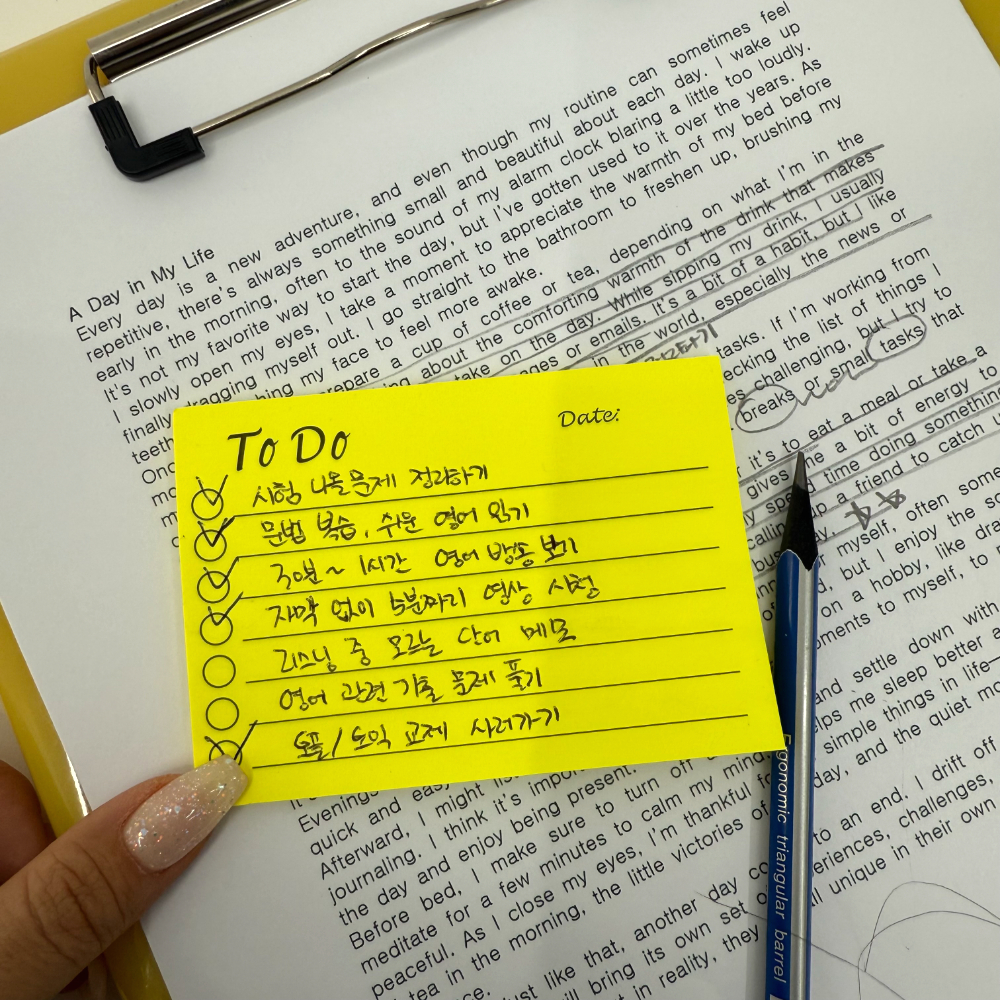 A Day in My Life
Every day is a new adventure, and even though my routine can sometimes feel
repetitive, there's always something small and beautiful about each day. I wake up
early in the morning, often to the sound of my alarm clock blaring a little too loudly.
It's not my favorite way to start the day, but I've gotten used to it over the years. As
I slowly open my eyes, I take a moment to appreciate the warmth of my bed before
finally dragging myself out. I go straight to the bathroom to freshen up, brushing my
teeth my face to feel more awake.
prepare a cup of coffee or tea, depending on what I'm in the
about the comforting warmth of the drink that makes
take on the day. While sipping my drink, I usually
or emails. It's a bit of a habit, but I like
in the world, especially the news or
tasks. If I'm working from
the list of things I
challenging, but I try to
breaks or small tasks that
it's to eat a meal or take a
gives me a bit of energy to
time doing something
a friend to catch
myself, often
but I enjoy the
on a hobby, like
to myself, to
To Do
Date:
시험 나올 문제 정리하기
문법 복습, 쉬운 영어 읽기
30분~1시간 영어 방송 보기
자막 없이 5분짜리 영상 시청
리스닝 중 모르는 단어 메모
영어 관련 기출 문제 풀기
토플/토익 교제 사러가기
and settle down with
me sleep better
simple things in life—
day, and the quiet
Evenings
quick and easy
Afterward, I might
journaling. I think it's
the day and enjoy being present.
Before bed, I make sure to turn off
meditate for a few minutes to calm my mind
peaceful. As I close my eyes, I'm thankful
tea in the morning, the little victories of
just like that, another day to an end. I drift off
will bring its own set of challenges,
in reality, they all unique in their own
Ergonomic triangular barrel